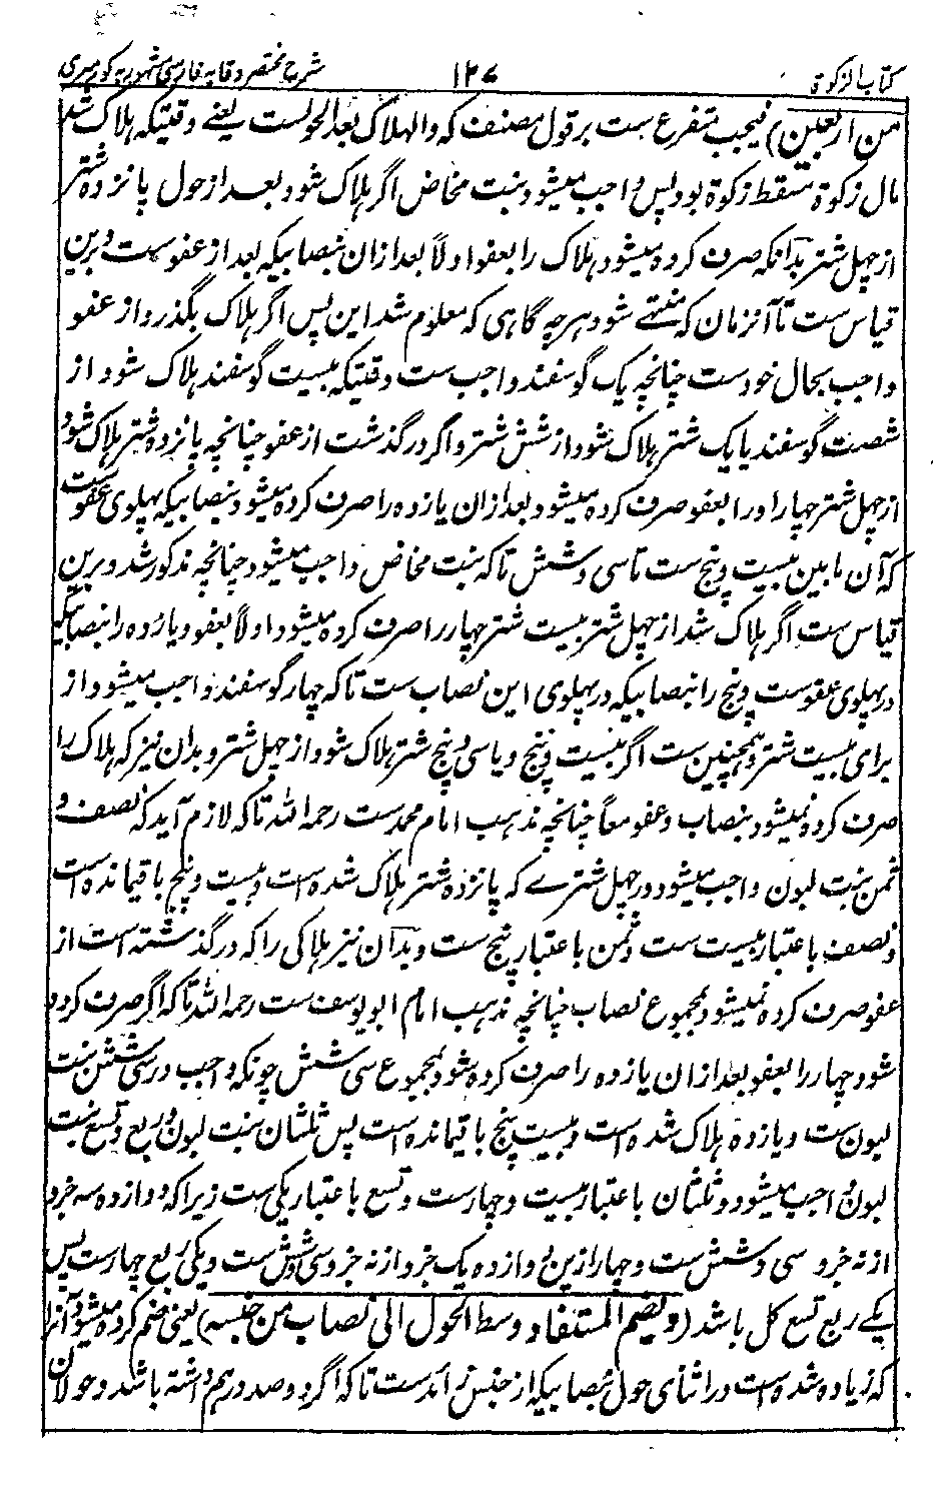 کتاب الزکوة ۱۲۷ شرح مختصر وقایه فارسی مشهور به کور میری
من اربعین) فیجب متفرع ست بر قول مصنف که والهلاک بعد الحولست یعنے وقتیکه هلاک شد
مال زکوة مسقط زکوة بود پس واجب میشود بنت مخاض اگر هلاک شود بعد از حول پانزده شتر
از چهل شتر بدانکه صرف کرده میشود هلاک را بعفو اولاً بعد ازان بنصابیکه بعد از عفوست و برین
قیاس ست تا آنزمان که منتهے شود هرچه گاهی که معلوم شد این پس اگر هلاک بگذرد از عفو
واجب بحال خودست چنانچه یک گوسفند واجب ست وقتیکه بیست گوسفند هلاک شود از
شصت گوسفند یا یک شتر هلاک شود از شش شتر و اگر در گذشت از عفو چنانچه پانزده شتر هلاک شود
از چهل شتر چهار اورا بعفو صرف کرده میشود بعد ازان یازده را صرف کرده میشود بنصابیکه پهلوی عفوست
که آن مابین بیست و پنج ست تا سی و شش تا که بنت مخاض واجب میشود چنانچه مذکور شد و برین
قیاس ست اگر هلاک شد از چهل شتر بیست شتر چهار را صرف کرده میشود اولاً بعفو و یازده را بنصابیکه
در پهلوی عفوست و پنج را بنصابیکه در پهلوی این نصاب ست تا که چهار گوسفند واجب میشود از
برای بیست شتر و همچنین ست اگر بیست و پنج و یا سی و پنج شتر هلاک شود از چهل شتر و بدان نیز که هلاک را
صرف کرده نمیشود بنصاب و عفو معاً چنانچه مذهب امام محمدست رحمه الله تا که لازم آید که نصف و
ثمن بنت لبون واجب میشود در چهل شترے که پانزده شتر هلاک شده است و بیست و پنج باقیمانده است
و نصف باعتبار بیست ست و ثمن باعتبار پنج ست و بدان نیز هلاکی را که در گذشته است از
عفو صرف کرده نمیشود بمجموع نصاب چنانچه مذهب امام ابو یوسف ست رحمه الله تا که اگر صرف کرده
شود چهار را بعفو بعد ازان یازده را صرف کرده شود بمجموع سی و شش چونکه واجب در سی و شش بنت
لبون ست و یازده هلاک شده است و بیست و پنج باقیمانده است پس ثلثان بنت لبون و ربع تسع بنت
لبون واجب میشود و ثلثان باعتبار بیست و چهارست و تسع باعتبار یکی ست زیرا که دوازده سه جزو
از نه جزو سی و شش ست و چهار ازین دوازده یک جزو از نه جزو سی و شش ست و یکی ربع چهارست پس
یکے ربع تسع کل باشد (ویضم المستفاد وسط الحول الی نصاب من جنسه) یعنی ضم کرده میشود آنرا
که زیاده شده است در اثنای حول بنصابیکه از جنس زائدست تا که اگر دو صد درهم داشته باشد و حولان